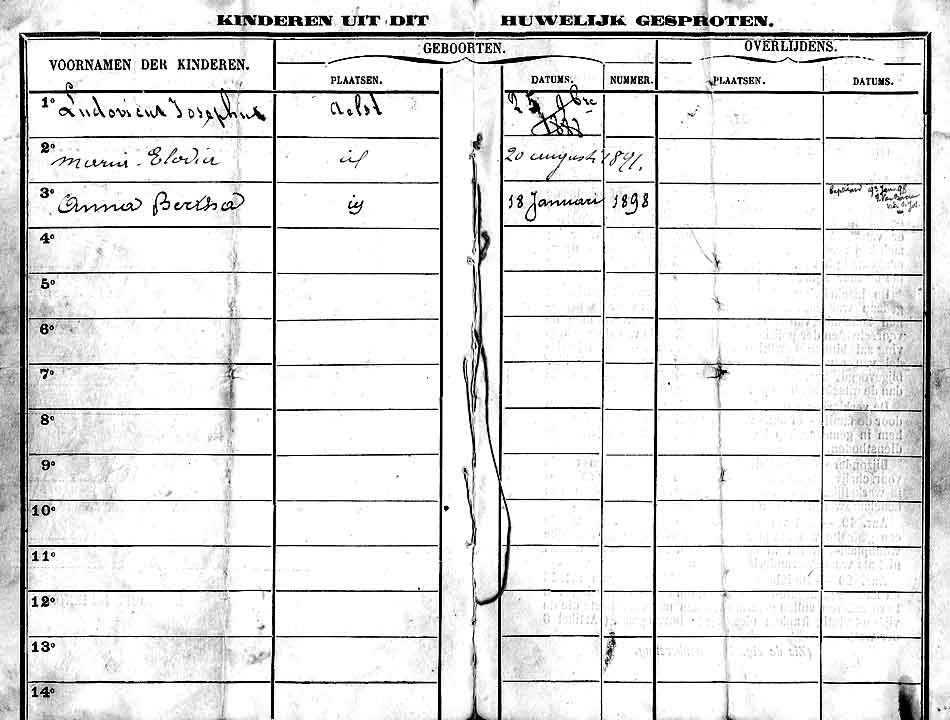 KINDEREN UIT DIT HUWELIJK GESPROTEN.
GEBOORTEN. OVERLIJDENS.
VOORNAMEN DER KINDEREN.
PLAATSEN. DATUMS. NUMMER. PLAATSEN. DATUMS.
1° Ludovicus Josephus Aelst 25 9bre
2° Maria Elodia id 20 augusti 1891.
3° Anna Bertha id 18 Januari 1898
4°
5°
6°
7°
8°
9°
10°
11°
12°
13°
14°